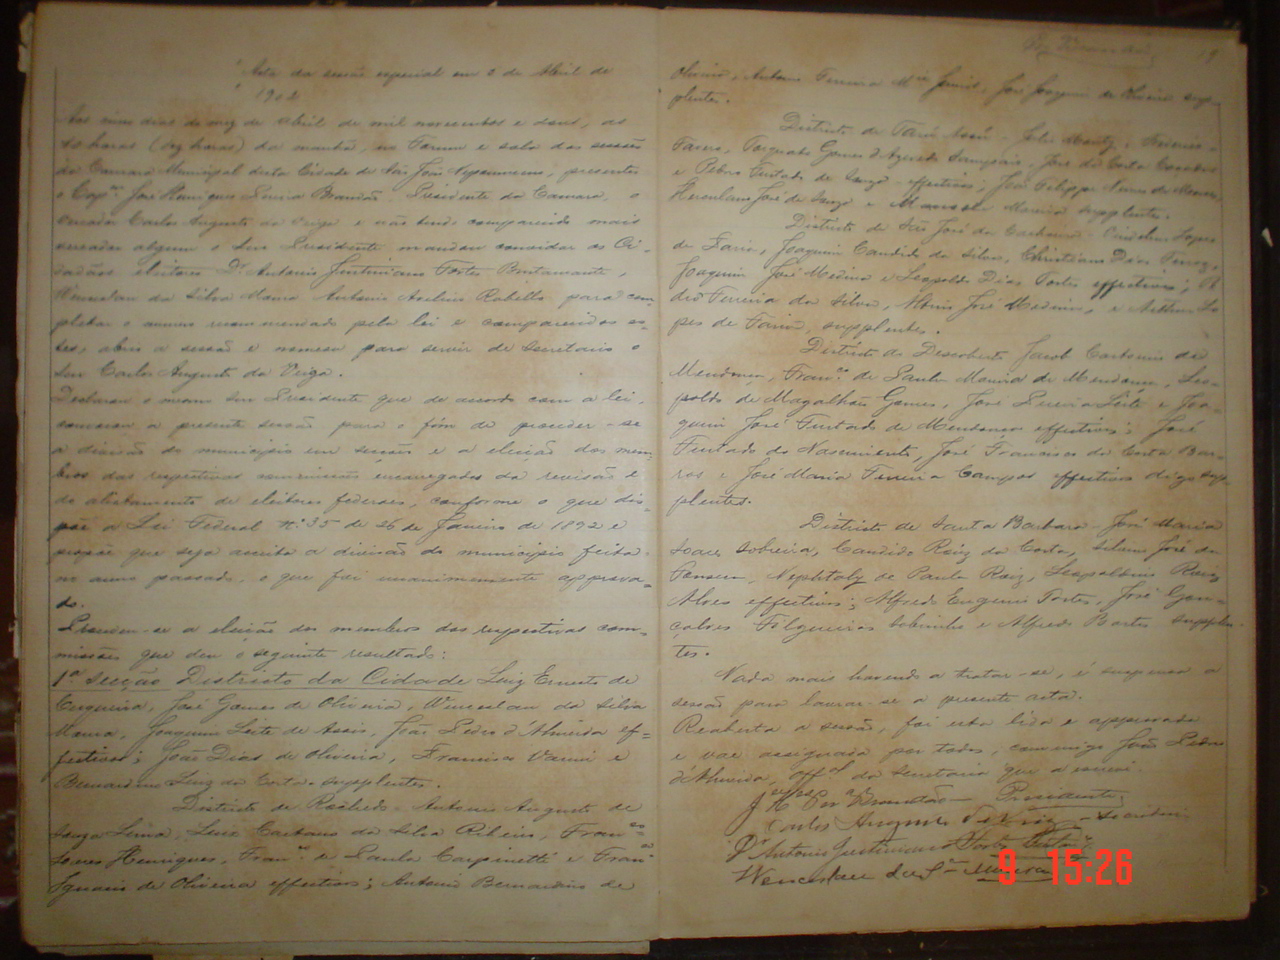 Acta da sessão especial em 5 de Abril de
1902
Aos cinco dias do mez de Abril de mil novecentos e dous, as
10 horas (dez horas) da manhã, no Forum e sala das sessões
da Camara Municipal desta Cidade de São João Nepomuceno, presentes
o Capm José Henriques Pereira Brandão, Presidente da Camara, o
vereador Carlos Augusto da Veiga e não tendo comparecido mais
vereador algum o Snr Presidente mandou convidar os Ci-
dadãos eleitores Dr Antonio Justiniano Fortes Bustamante,
Wenceslau da Silva Moura Antonio Avelino Rabello para com-
pletar o numero recommendado pela lei e comparecidos es-
tes, abrio a sessão e nomeou para servir de Secretario o
Snr Carlos Augusto da Veiga.
Declarou o mesmo Snr Presidente que de acordo com a lei,
convocou a presente sessão para o fim de proceder-se
a divisão do municipio em secções e a eleição dos mem-
bros das respectivas commissões encarregadas da revisão e
do alistamento de eleitores federaes, conforme o que dis-
põe a Lei Federal nº 35 de 26 de Janeiro de 1892 e
propõe que seja acceita a divisão do municipio feita
no anno passado, o que foi unanimemente approva-
do.
Procedeu-se a eleição dos membros das respectivas com-
missões que deu o seguinte resultado:
1ª Secção Districto da Cidade Luiz Ernesto de
Cerqueira, José Gomes de Oliveira, Wenceslau da Silva
Moura, Joaquim Leite de Assis, João Pedro d'Almeida ef-
fectivos; João Dias de Oliveira, Francisco e
Bernardino Luiz da Costa, supplentes.
Districto de Rochedo - Antonio Augusto de
Souza Lima, Luiz Caetano da Silva Ribeiro, Franco
Soares Henriques, Franco de Paula Carpinetti e Franco
Ignacio de Oliveira effectivos; Antonio Bernardino de
19
Oliveira, Antonio Ferreira Junior, José Joaquim de Oliveira sup-
plentes.
Districto de - Julio
Torquato Gomes d'Azevedo Sampaio, José da Costa
e Pedro Furtado de Souza effectivos; João Felippe Nunes de
Herculano José de Souza e Manoel Moreira supplentes.
Districto de José da - Lopes
de Faria, Joaquim Candido da Silva, Christiano Dias Ferraz,
Joaquim José Medina e Leopoldo Dias Fortes effectivos;
Ferreira da Silva, José Medina, e Arthur Lo-
pes de Faria, supplentes.
Districto do Descoberto Jacob Carbonio de
Mendonça, Franco de Paula Moreira de Mendonça, Leo-
poldo de Magalhães Gomes, José Pereira Leite e Joa-
quim José Furtado de Mendonça effectivos; José
Furtado do Nascimento, José Francisco da Costa Bar-
ros e José Maria Ferreira Campos effectivos digo sup-
plentes.
Districto de Santa Barbara - José Maria
Soares Sobreira, Candido Roiz da Costa, José da
Fonseca, Nephtaly de Paula Roiz, Leopoldino Roiz
Alves effectivos; Alfredo Eugenio Fortes, José Gon-
çalves Filgueiras Sobrinho e Alfredo Bastos supplen-
tes.
Nada mais havendo a tratar-se, é suspensa a
sessão para lavrar-se a presente acta.
Reaberta a sessão, foi esta lida e approvada
e vae assignada por todos, commigo João Pedro
d'Almeida, offal da secretaria que a escrevi.
Brandão - Presidente
Carlos Augusto da Veiga - Secretario
Dr Antonio Justiniano Fortes Bustame
Wenceslau da Sa Moura
9 15:26